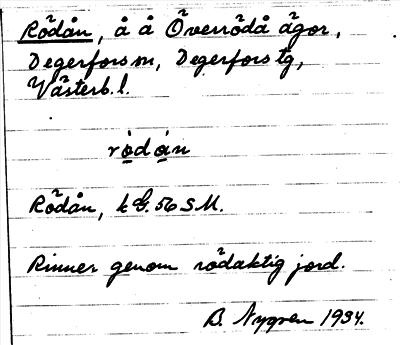 Rödån, å å Överrödå ägor,
Degerfors sn, Degerfors tg,
Västerb. l.
ròdán
Rödån, k G. 56 S.M.
Rinner genom rödaktig jord.
B. Nygren 1934.